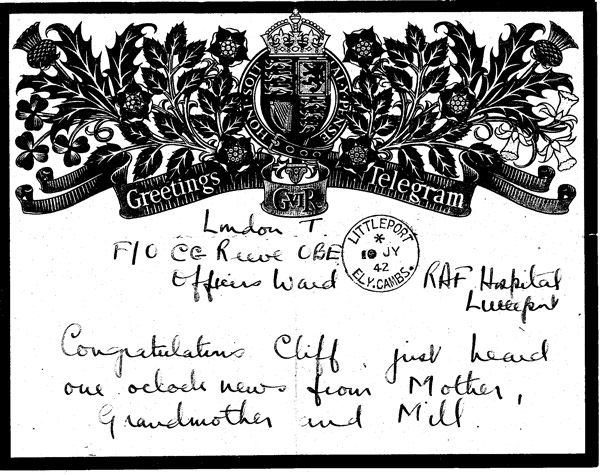 HONI·SOIT·QUI·MAL·Y·PENSE
Greetings Telegram
GVIR
London T.
F/O CG Reeve OBE
Officers Ward
LITTLEPORT
*
19 JY
42
ELY. CAMBS.
RAF Hospital
Congratulations Cliff, just heard
one oclock news from Mother,
Grandmother and Mill.